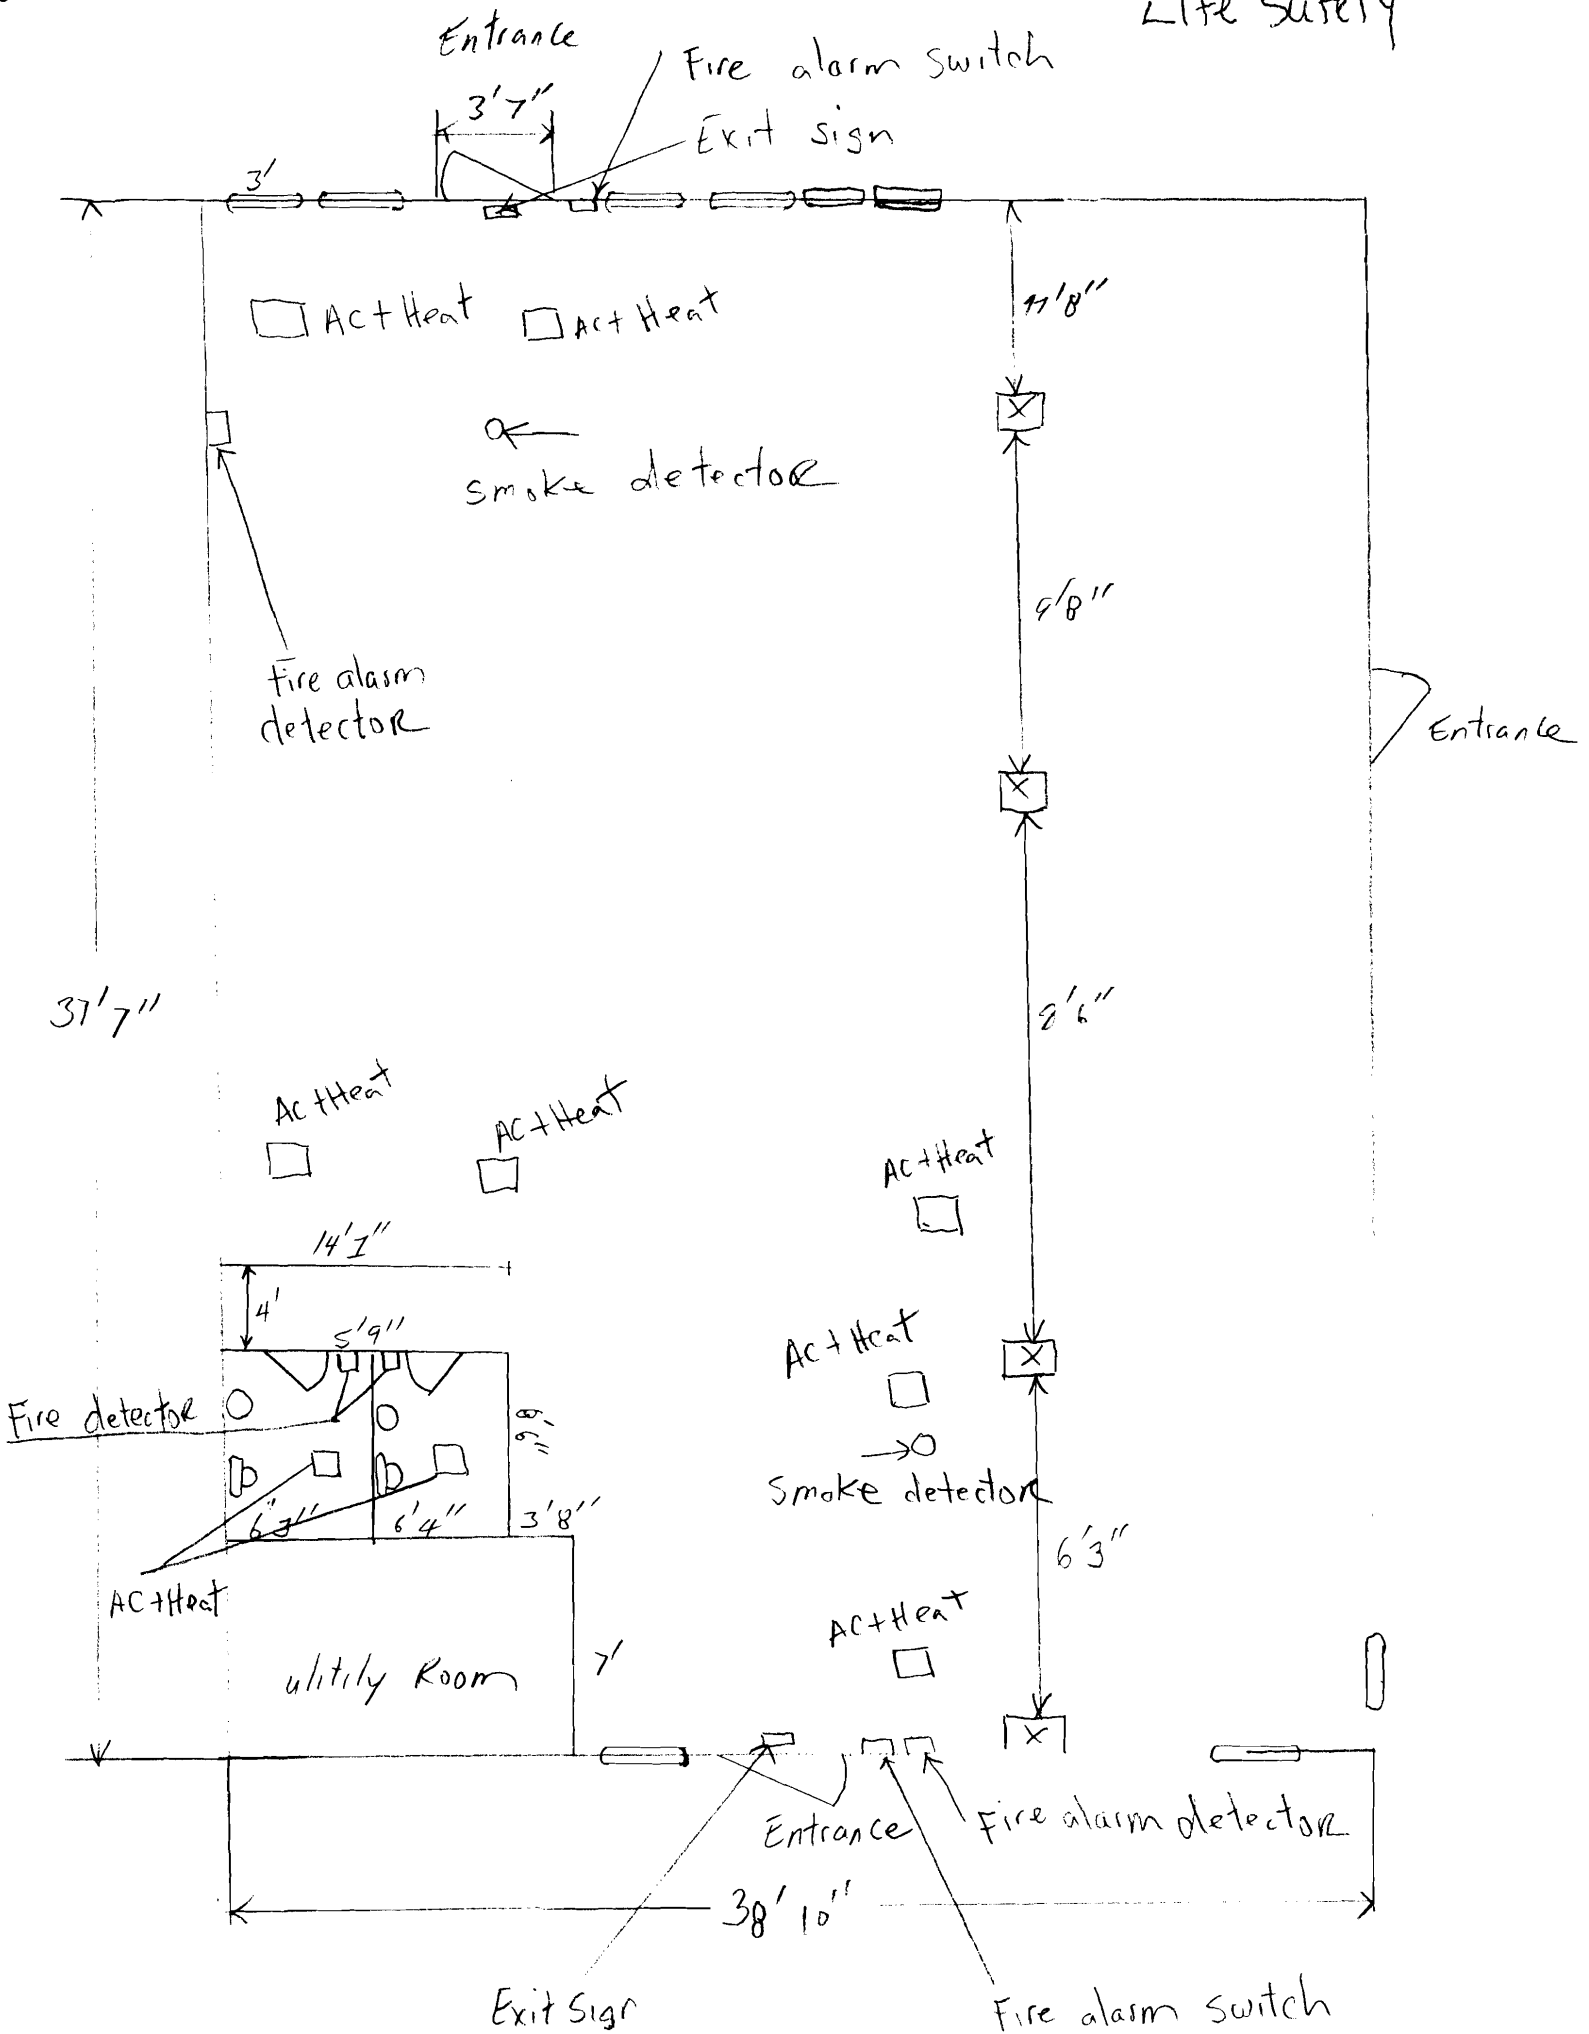 Life Safety
Entrance
Fire alarm switch
3'7"
Exit sign
3'
AC+Heat
AC+Heat
11'8"
smoke detector
9'8"
Fire alarm
detector
Entrance
37'7"
8'6"
AC+Heat
AC+Heat
AC+Heat
14'1"
4'
5'9"
AC+Heat
Fire detector
8'6"
smoke detector
6'3"
6'4"
3'8"
6'3"
AC+Heat
AC+Heat
ulitily Room
7'
Entrance
Fire alarm detector
38'10"
Exit Sign
Fire alarm switch